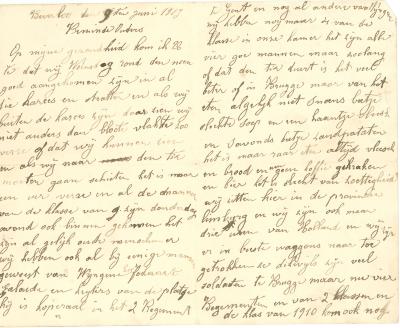 Beverloo den 9 ten juni 1913
Beminde Ouders
Op mijne gezondheid kom ik U
te dat wij rond den noen
goed aangekomen zijn in al
die karees en straten en als wij
buiten de karees zijn daar zien wij
niet anders dan bloote vlakte zoo
verse of dat wij kunnen zien
en als wij naar den tir
moeten gaan schieten het is maar
een uur verre en al de
van de klasse van 9 zijn donderdag
avond ook binnen gekomen het
zijn al gelijk oude menschen er
wij hebben ook al bij eenige mannen
geweest van Wijngene Johannes
Balaarde en kijkers van de plaatse
hij is koperaal in het 2 Regement
te Gent en nog al andere
wij hebben nog maar van de
klasse in onze kamer het zijn alle
vier goe mannen maar zoolang
of dat den tir duurt is het veel
beter of in Brugge maar van het
eten algelijk niet smoens betje
slechte soep en een haantje vleesch
en savonds betje aardpataten
het is maar raar eten altijd vleesch
en brood en geene koffie gekraken
en bier het is slecht van
wij zitten hier in de provincie
Limburg en wij zijn ook maar
drie uren van Holland en wij zijn
er in beeste waggons naar toe
getrokken er zijn veel
soldaten te Brugge maar vier
Regementen en van 2 klassen en
de klas van 1910 kom ook nog